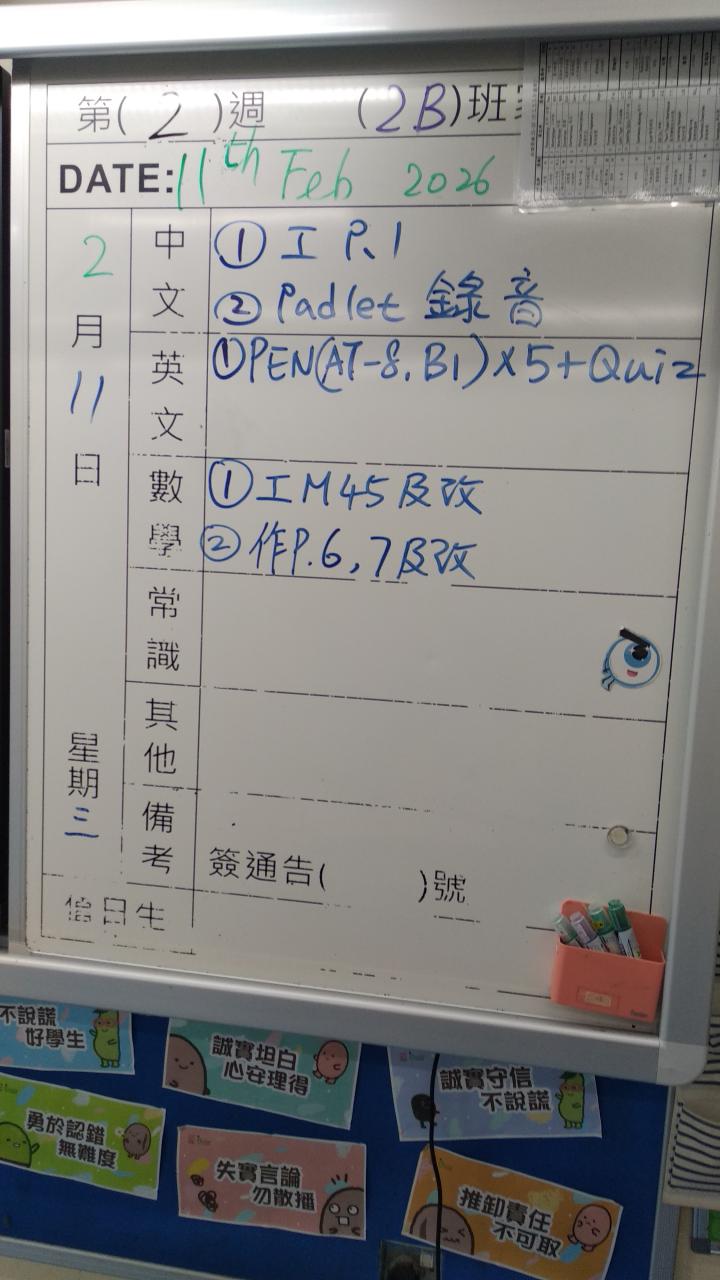 第(2)週 (2B)班
DATE: 11th Feb 2026
2月11日
星期三
中文
① 工 P.1
② Padlet 錄音
英文
① PEN(A7-8, B1)×5+Quiz
數學
① 工 M45 及改
② 作P.6, 7及改
常識
其他
備考
簽通告( )號
值日生
不說謊
好學生
誠實坦白
心安理得
誠實守信
不說謊
勇於認錯
無難度
失實言論
勿散播
推卸責任
不可取